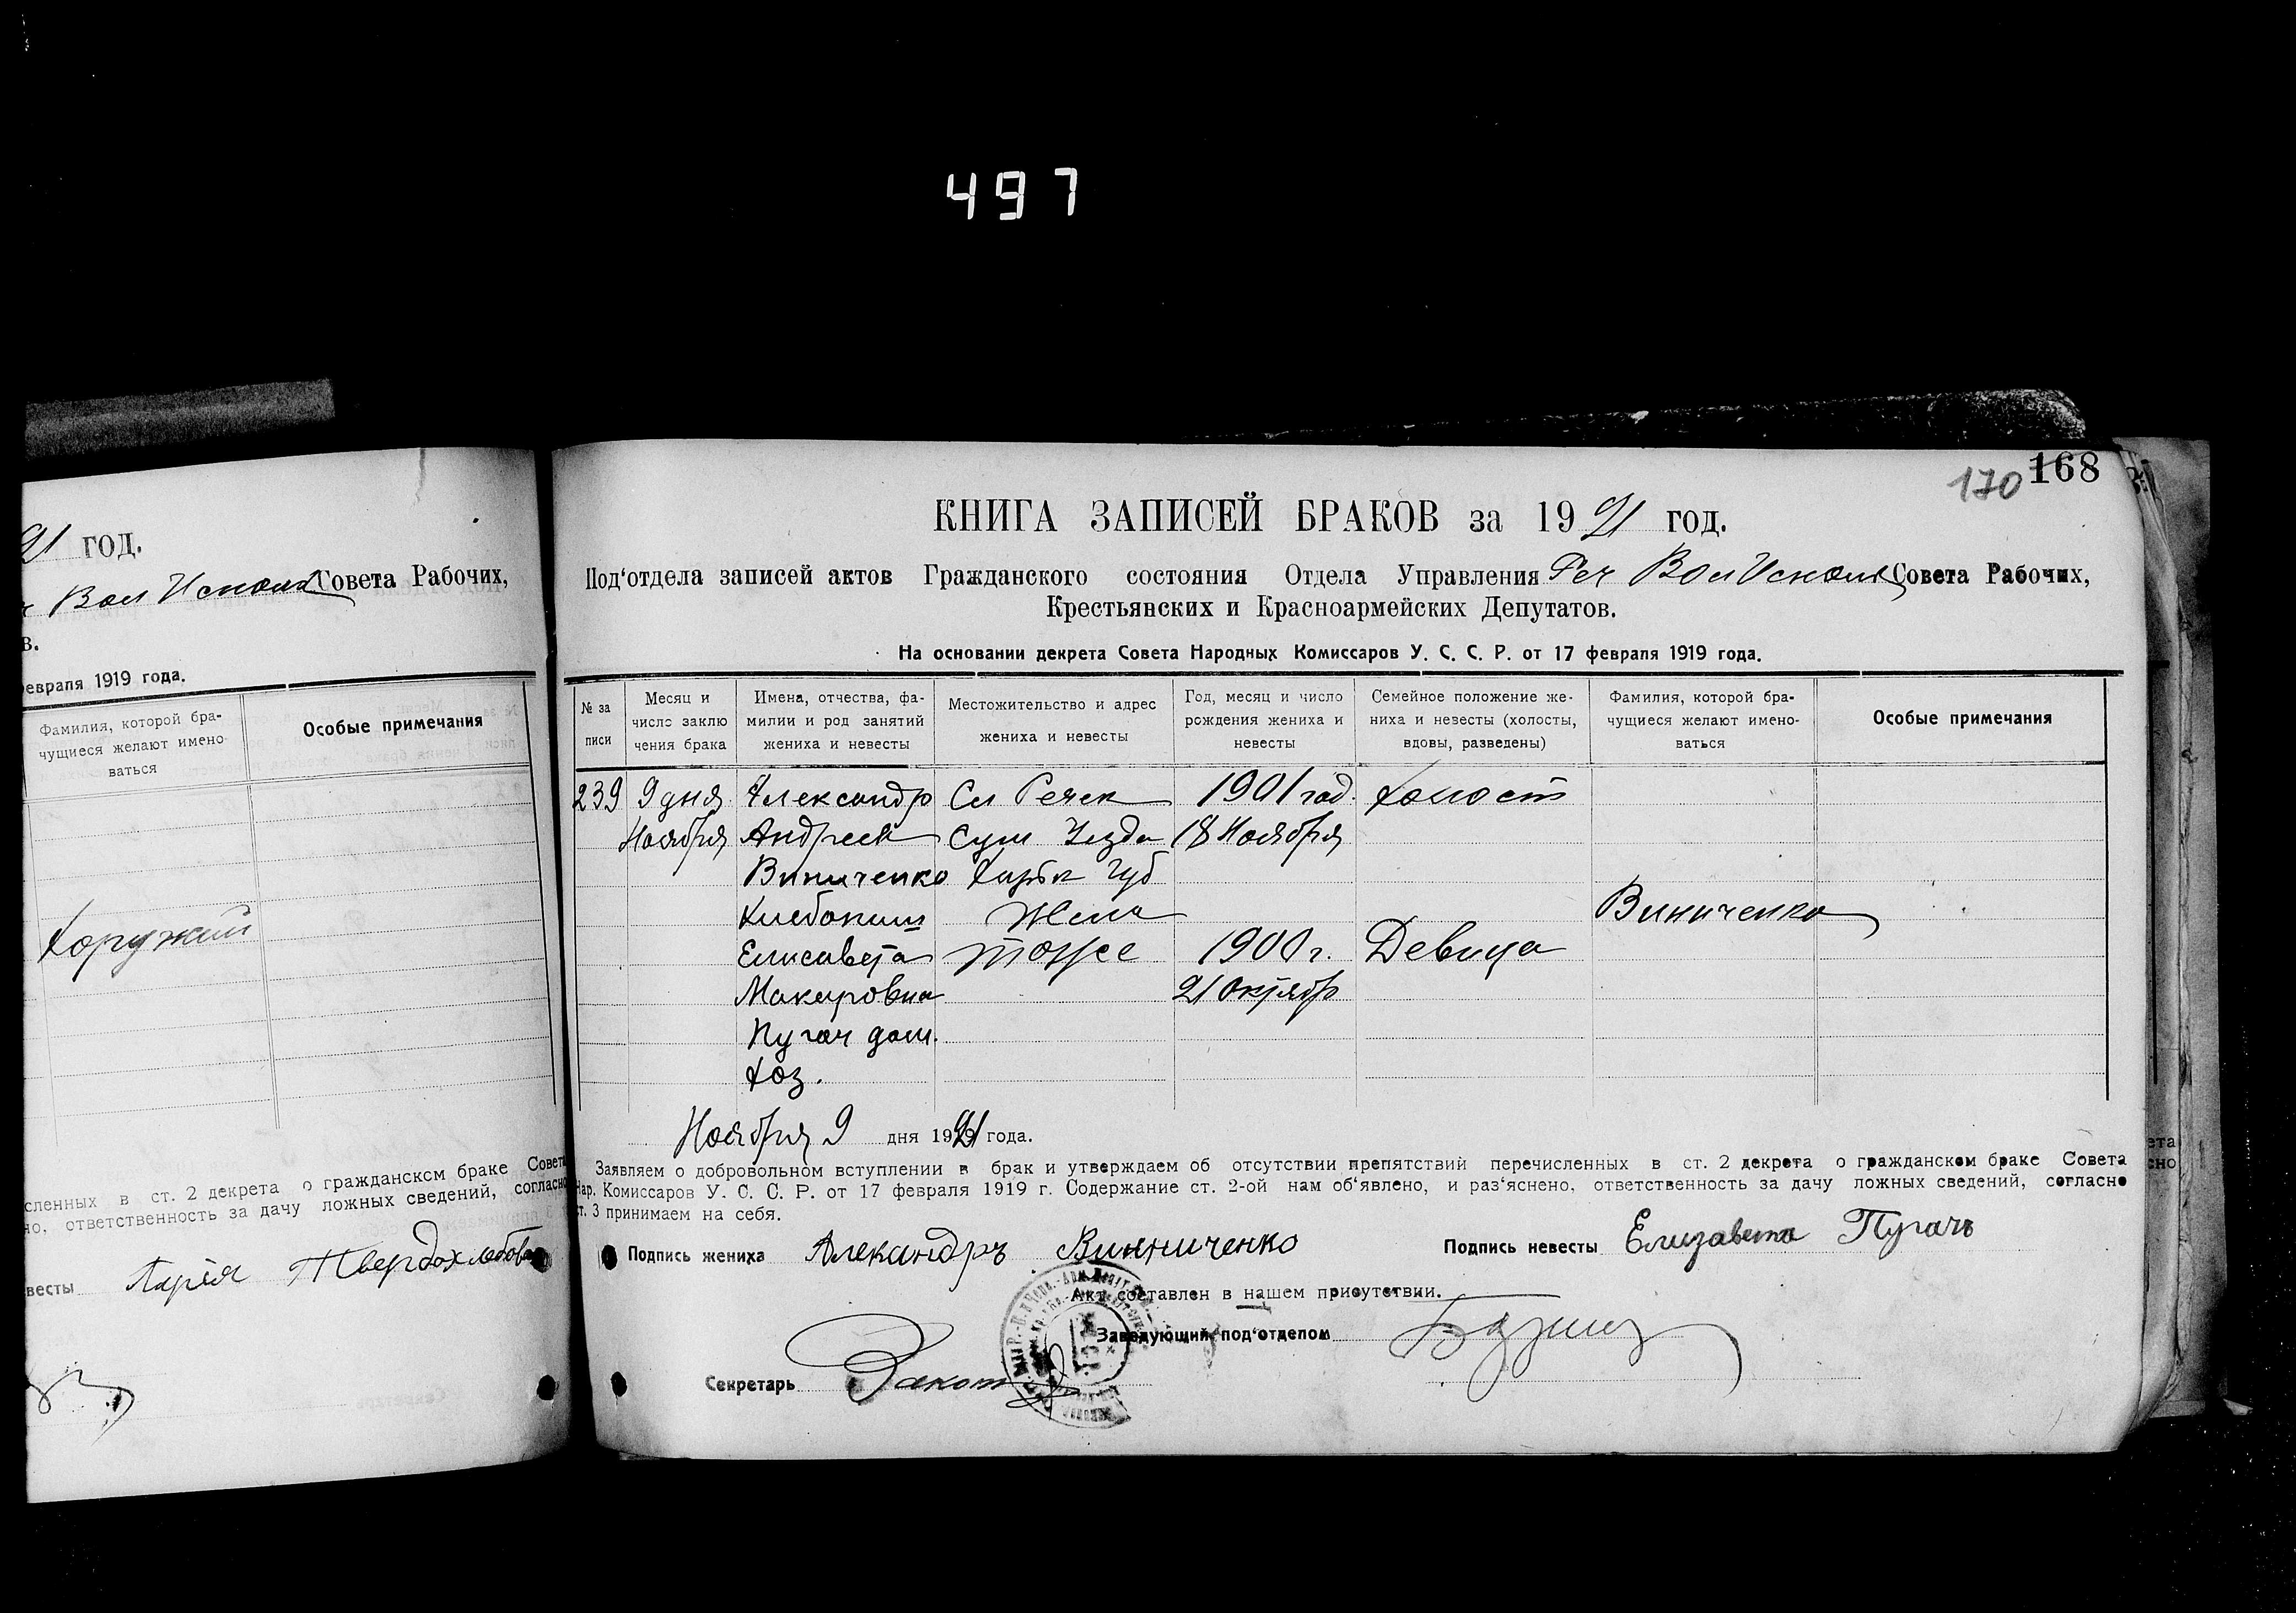 497
91 год.
Вол Исполк Совета Рабочих,
в.
февраля 1919 года.
Фамилия, которой бра-
чущиеся желают имено-
ваться
Особые примечания
Хоружий
сленных в ст. 2 декрета о гражданском браке Совета
но, ответственность за дачу ложных сведений, согласно
весты Марія Твердохлебова
170 168
КНИГА ЗАПИСЕЙ БРАКОВ за 1921 год.
Под‘отдела записей актов Гражданского состояния Отдела Управления Реч Вол Исполк Совета Рабочих,
Крестьянских и Красноармейских Депутатов.
На основании декрета Совета Народных Комиссаров У. С. С. Р. от 17 февраля 1919 года.
№ за
писи
Месяц и
число заклю
чения брака
Имена, отчества, фа-
милии и род занятий
жениха и невесты
Местожительство и адрес
жениха и невесты
Год, месяц и число
рождения жениха и
невесты
Семейное положение же-
ниха и невесты (холосты,
вдовы, разведены)
Фамилия, которой бра-
чущиеся желают имено-
ваться
Особые примечания
239 9 дня Александр Сл Речек 1901 год. холост
Ноября Андреев Сум Уезда 18 Ноября
Виниченко Харьк Губ
Хлебопаш Жена Виниченко
Елисавета тоже 1900 г. Девица
Макаровна 21 октябр
Пугач дом.
хоз.
Ноября 9 дня 1921 года.
Заявляем о добровольном вступлении в брак и утверждаем об отсутствии препятствий перечисленных в ст. 2 декрета о гражданском браке Совета
Нар. Комиссаров У. С. С. Р. от 17 февраля 1919 г. Содержание ст. 2-ой нам об‘явлено, и раз‘яснено, ответственность за дачу ложных сведений, согласно
ст. 3 принимаем на себя.
Подпись жениха Алекандръ Винниченко Подпись невесты Елизавета Пугачъ
Акт составлен в нашем присутствии.
Заведующий под‘отделом
Секретарь